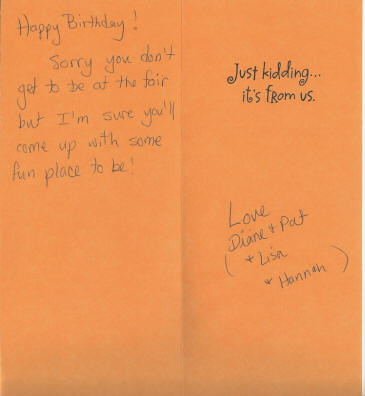 Happy Birthday!
Sorry you don't
get to be at the fair
but I'm sure you'll
come up with some
fun place to be!
Just kidding...
it's from us.
Love
Diane + Pat
( + Lisa
+ Hannah )